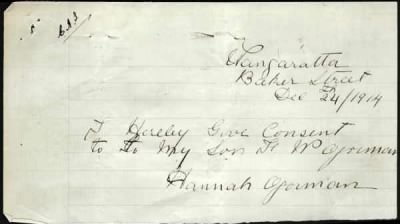 Wangaratta
Baker Street
Dec 24/1914
I Hereby Give Consent
to to My Son W Gorman
Hannah Gorman